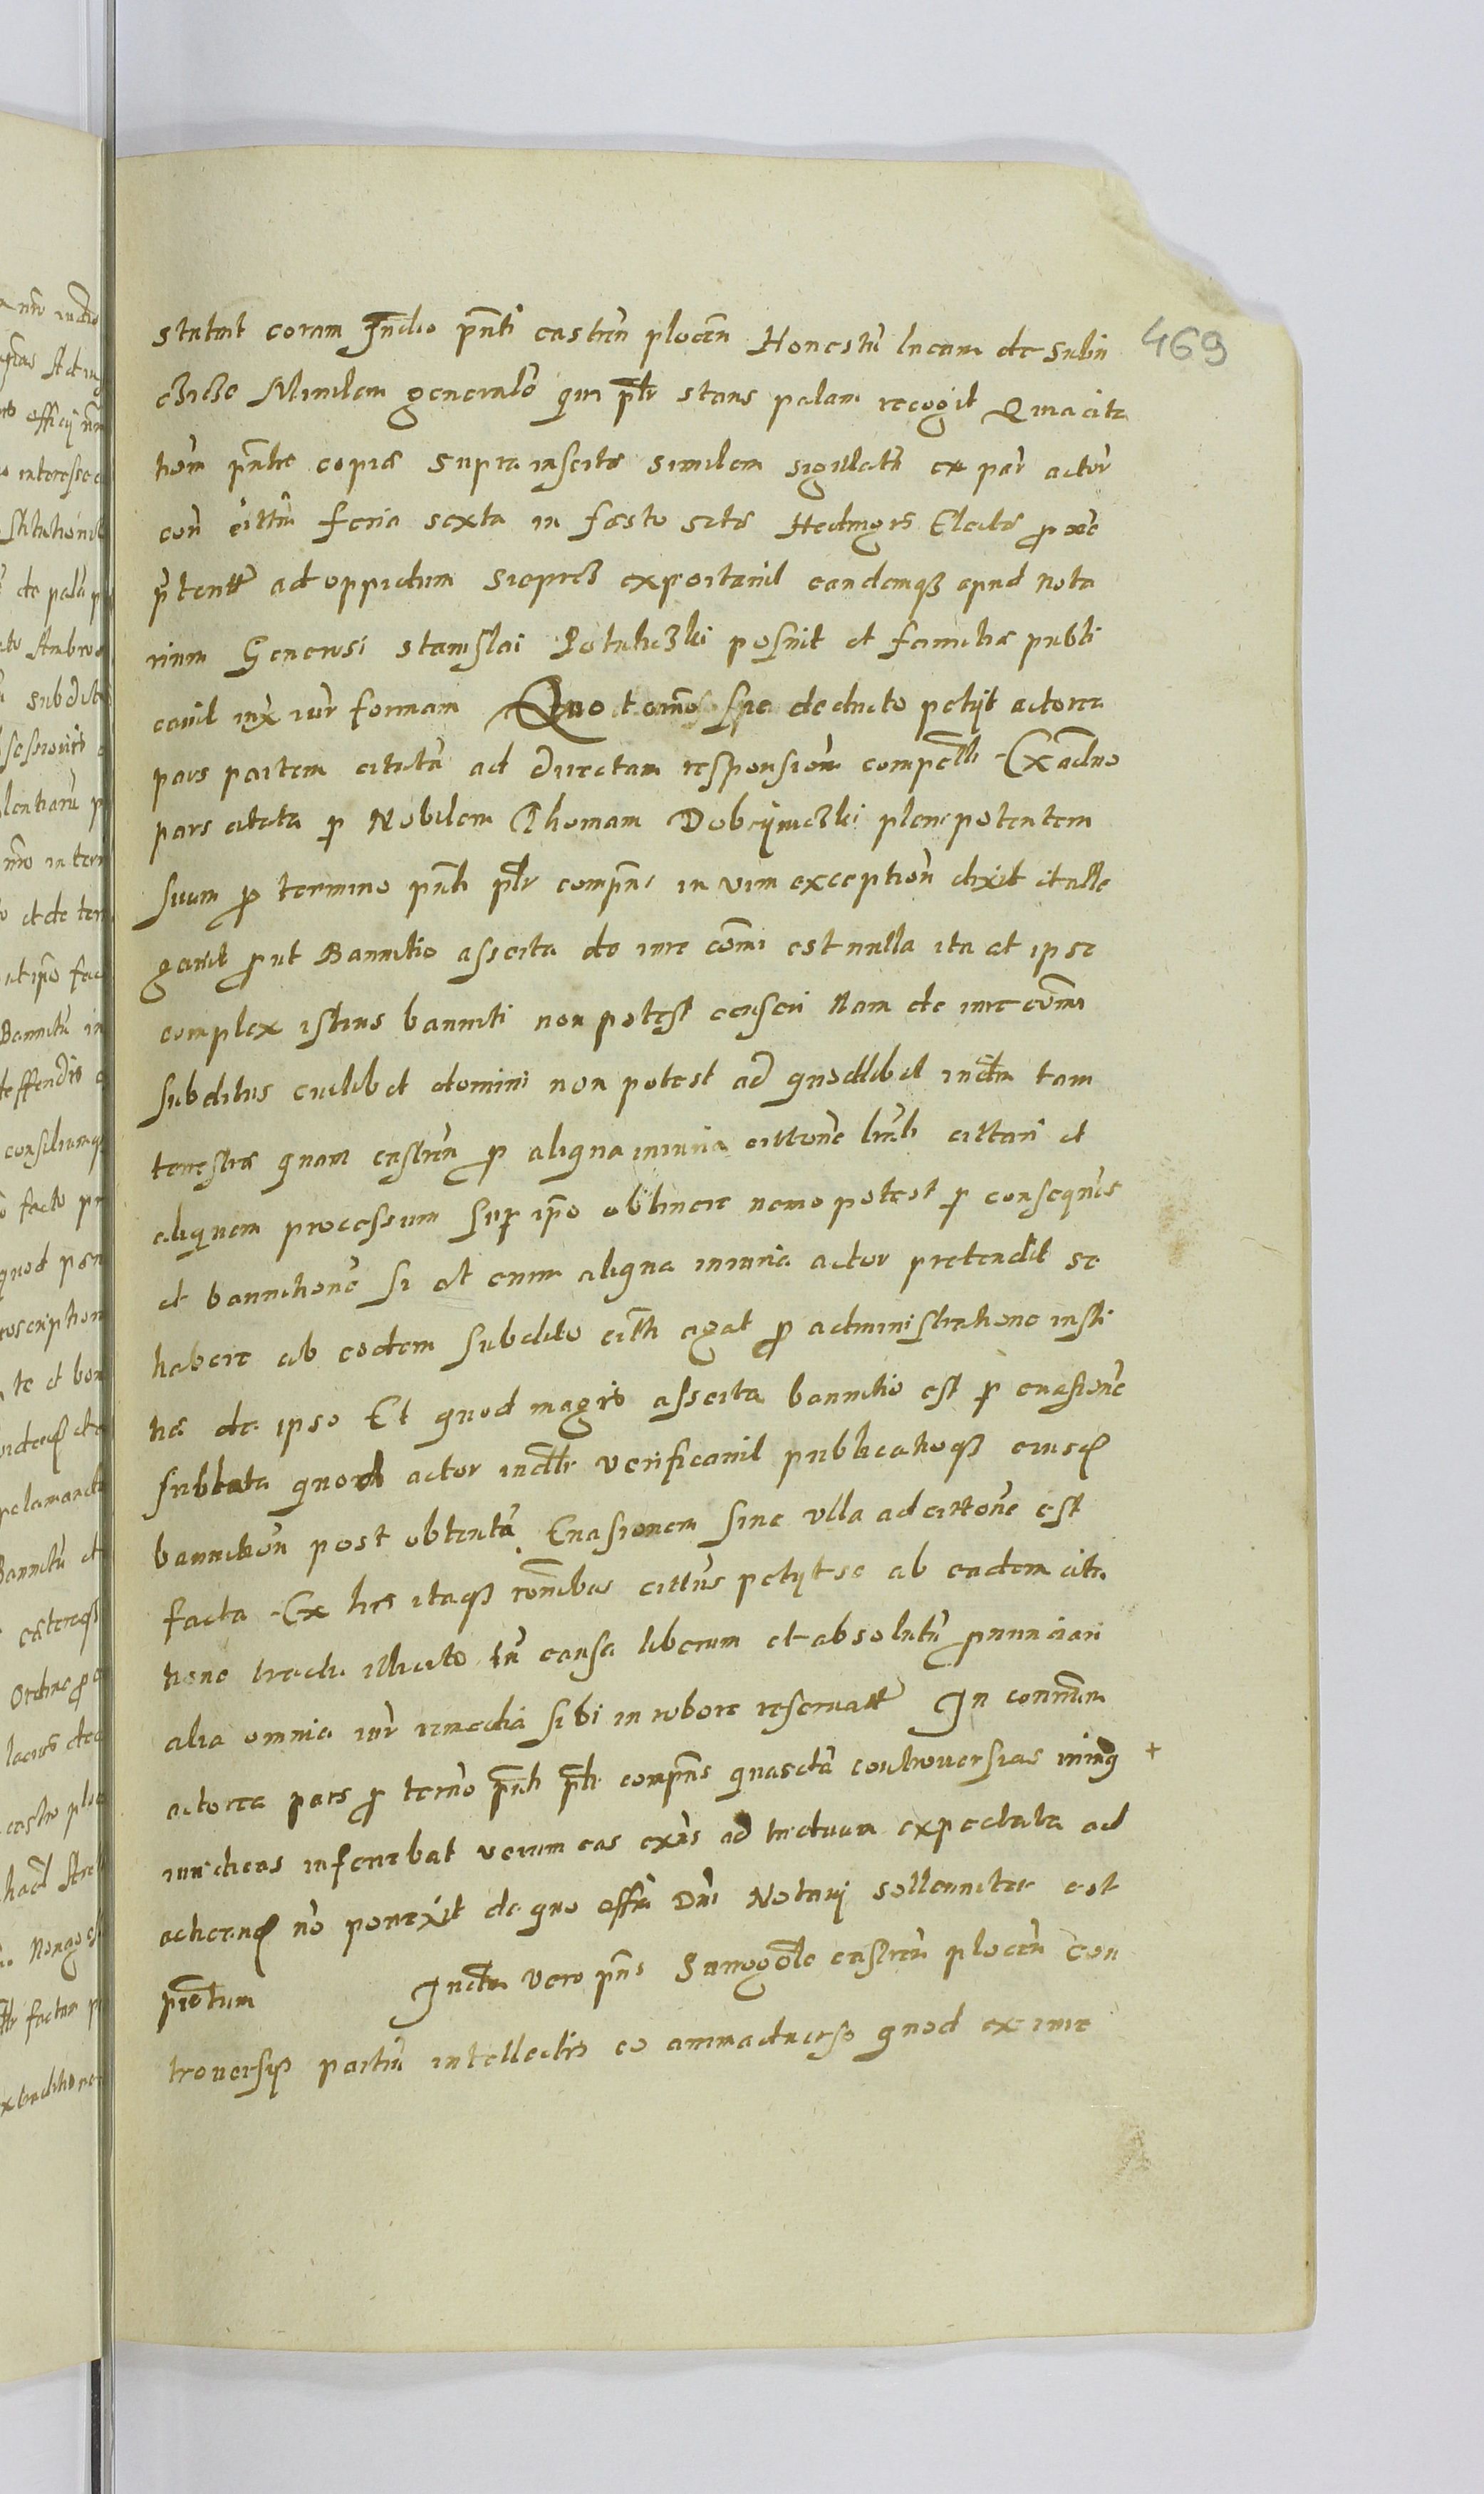 469
statuit coram Judio pnti castren plocen Honestu lucam de Sulin
Ministem generale qui pltr stans palam recogit Qui acita
tiom pntre copie suprainserte similem sigillata ex par actor
con cittm feria sexta in festo scte Hedingis Electe pxe
ptentt ad oppidum Sieprcz exportavit eandemqz apud nota
rium Generosi Stanislai Potuliczki posuit et familie publi
cavit iux iur formam Quo t deducto petijt actorea
pars partem citata ad directam responsiom compelli Ex aduo
pars citata p Nobilem Thomam Dobrijniczki plenipotentem
suum p termino pnti pltr compns in vim exception dixit et alle
gavit put Bannitio asserta de iure comi est nulla ita et ipse
complex istius banniti non potest censeri Nam de iure comi
subditus cuilibet domini non potest ad quodlibet iudm tam
terrestre quam castren p aliqua iniuria cittone cittari et
aliquem processum sup ipso obtinere nemo potest p consequens
et bannitione si at enim aliqua iniuria actor pretendit se
habere ab eodem subdito agat p administratione insti
tie de ipso Et quod magis asserta bannitio est p evasione
sublata quod actor verificavit publicatioqz eiusd
bannition post obtenta Evasionem sine ulla ad cittone est
facta Ex his itaqz ronibus cittus petijt se ab eadem cita
tione illicite in causa liberum et absolutu pnunciari
alia omnia iur remedia sibi in robore reservatt In contrum
actorea pars p termo pnti pltr compns quasda controversias +
iuridicas inferebat verum eas exns ad expectata ad
acticand no porrexit de quo offm Dni Notarij sollenniter est
ptestum Judm vero pns Surrogtle castren plocen con
troversijs partiu intellectis eo animadverso quod ex iure